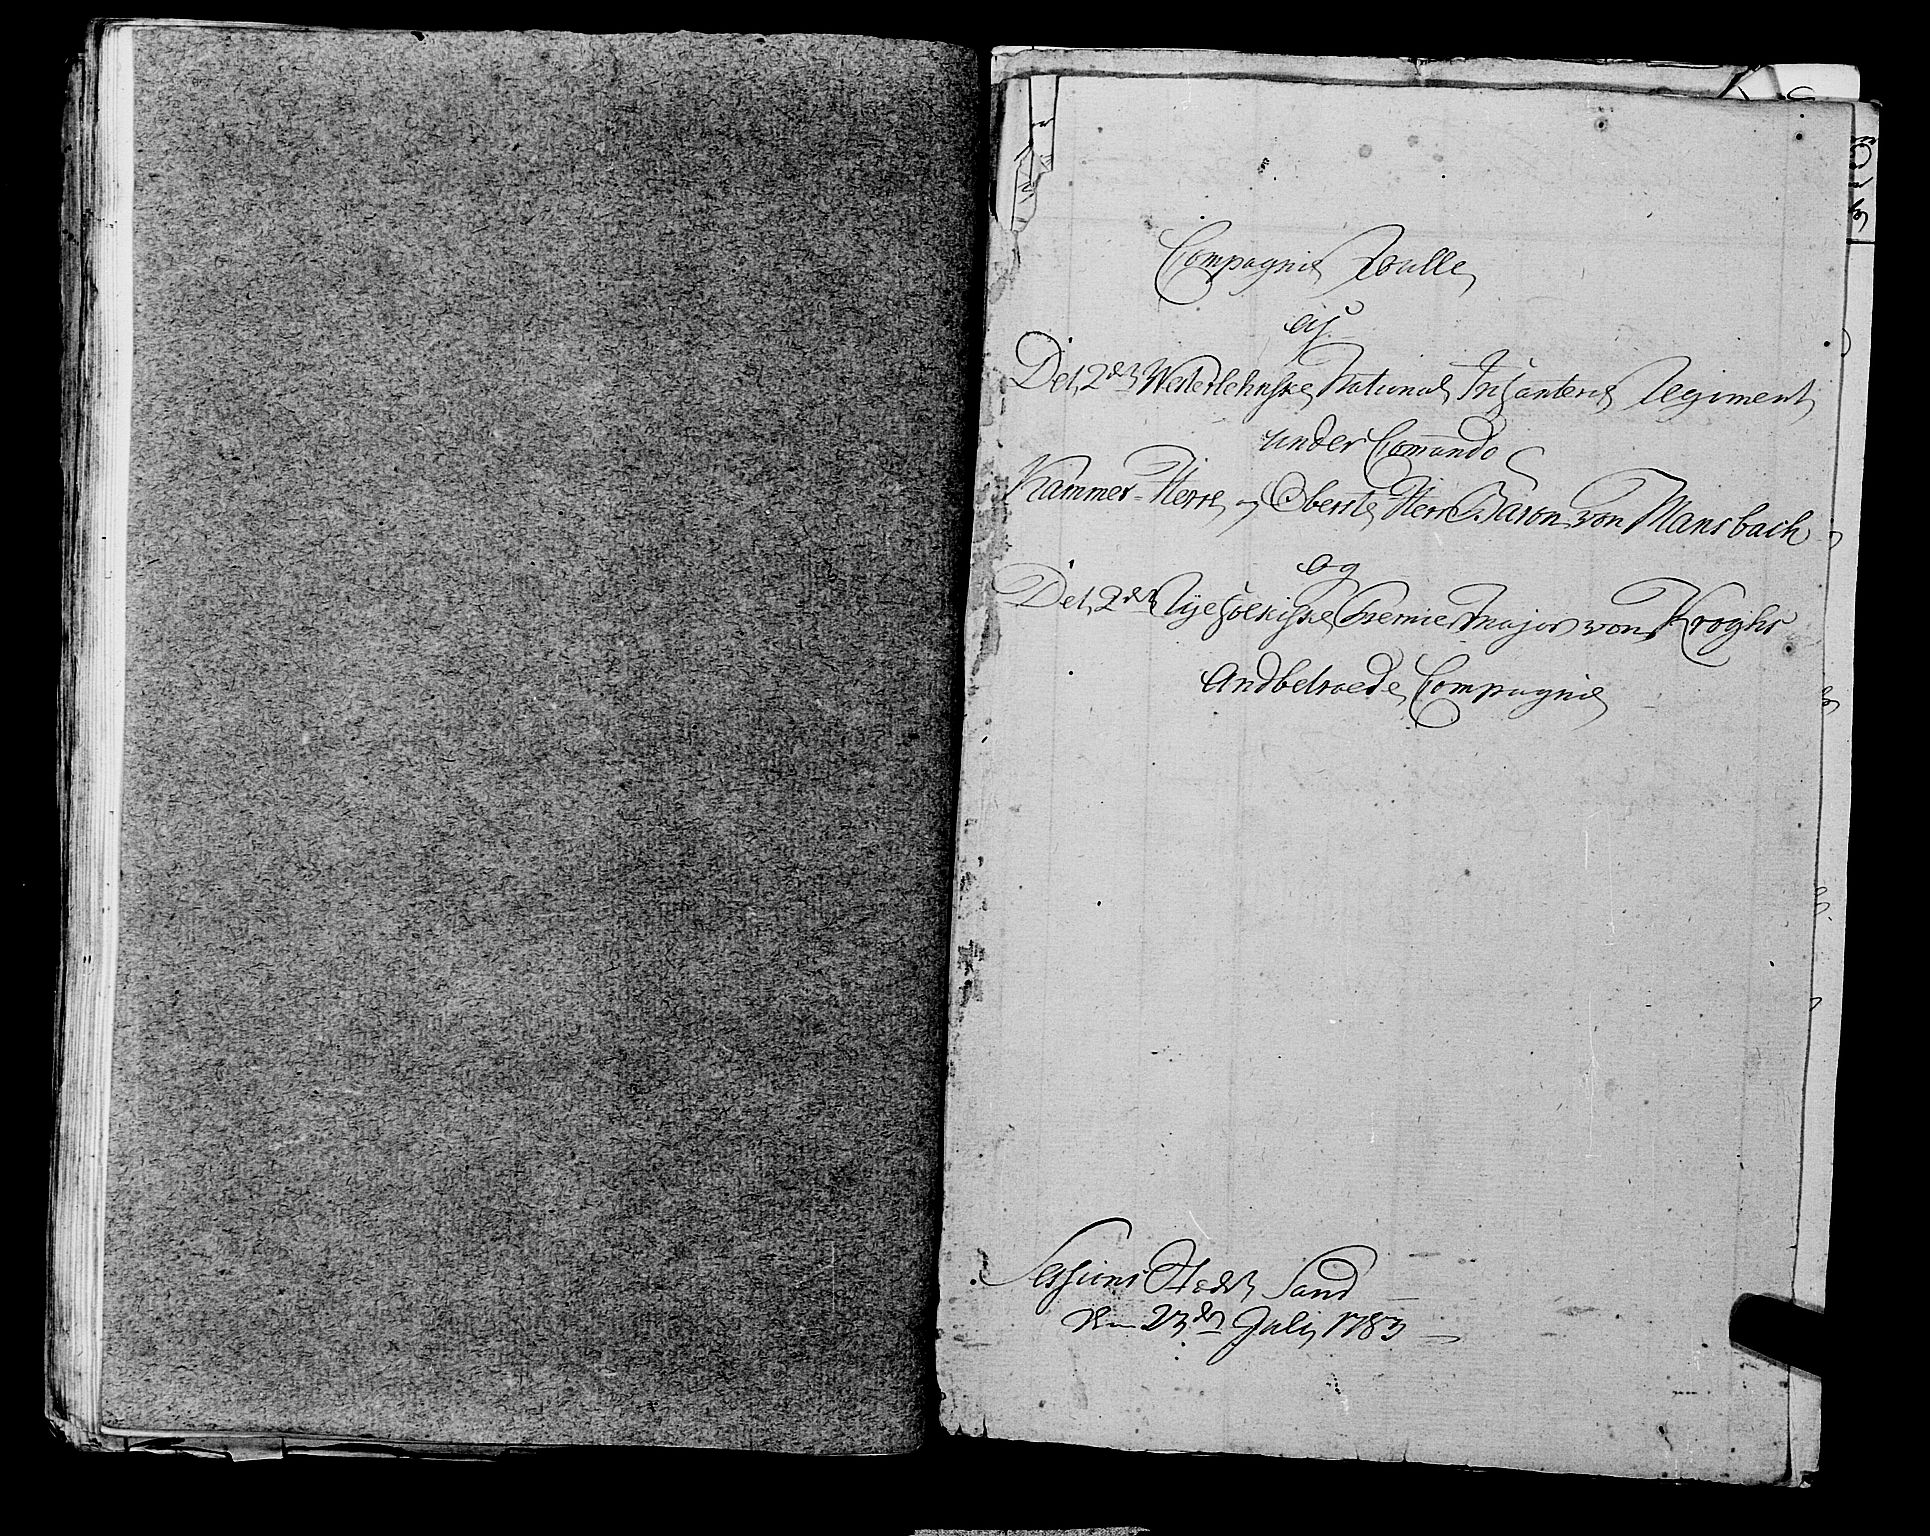 Compagnie Rulle
af
Det 2den Westerlehnske National Infanterie Regiment
under Comando
Kammer-Herre og Oberste Herr Baron von Mansbach
og
Det 2det Ryefölkiske Premier Major von Kroghs
Andbetroede Compagnie
Sessions Stædet Sand
den 23de July 1783